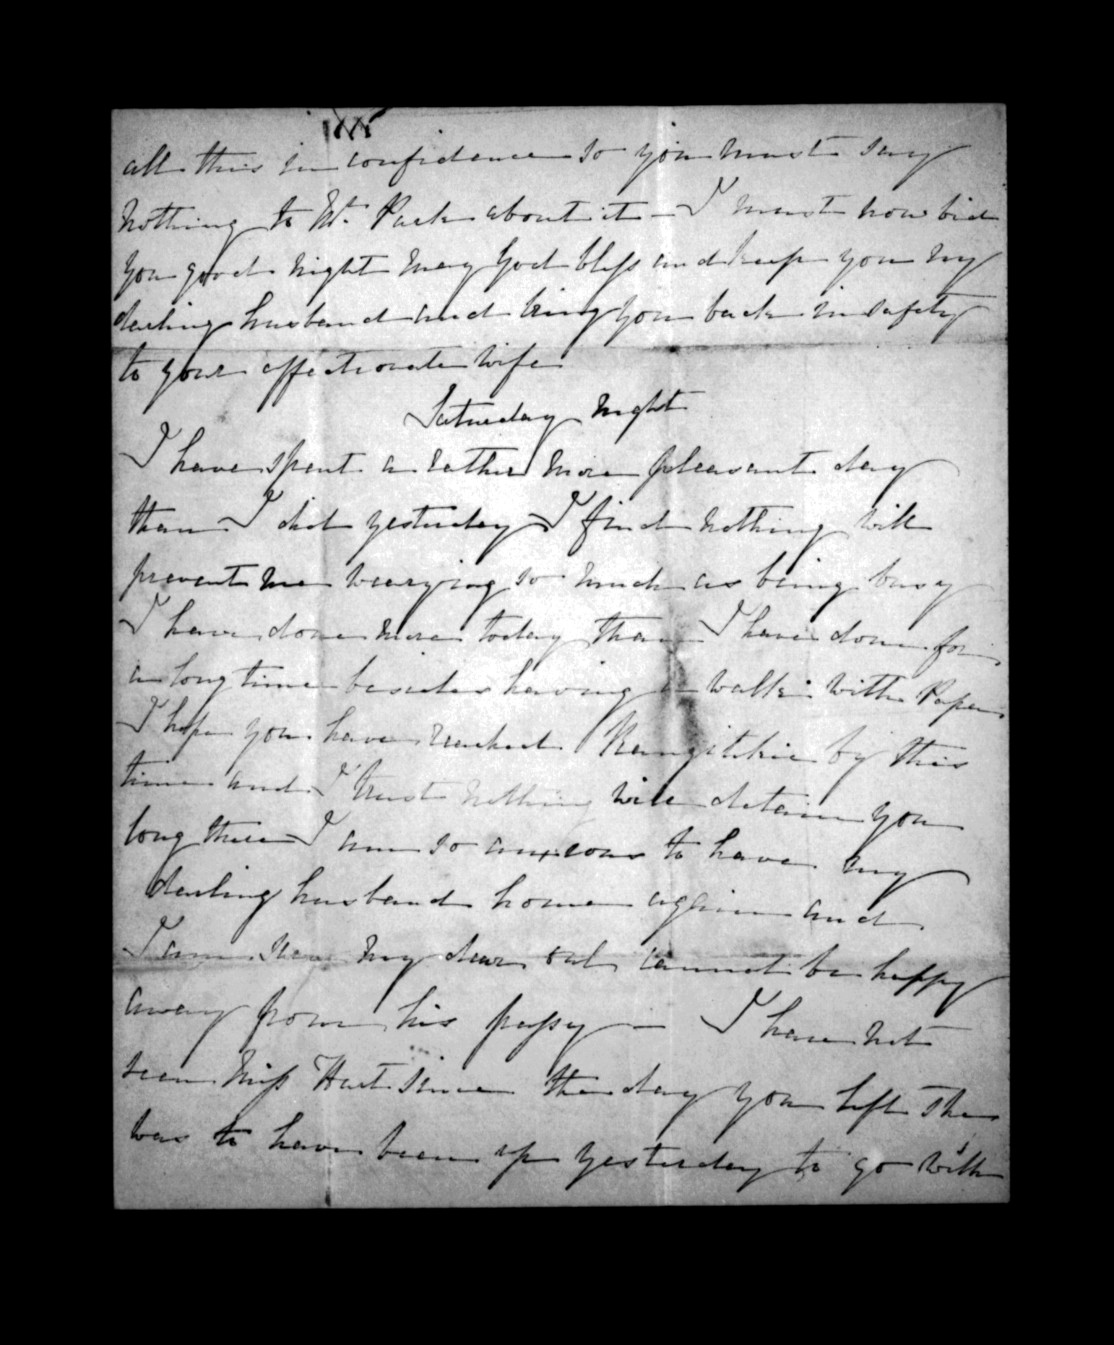 all this in confidence so you must say
nothing to Mr. Park about it – I must now bid
you good night may God bless and keep you my
darling husband and bring you back in safety
to your affectionate wife
Saturday Night
I have spent a rather more pleasant day
than I did yesterday I find nothing will
prevent me wearying so much as being busy
I have done more today than I have done for
a long time besides having a walk with Papa
I hope you have reached Rangitikie by this
time and I trust nothing will detain you
long there I am so anxious to have my
darling husband home again and
I am sure my dear old cannot be happy
away from his pussy — I have not
seen Miss Hart since the day you left She
was to have been up yesterday to go with